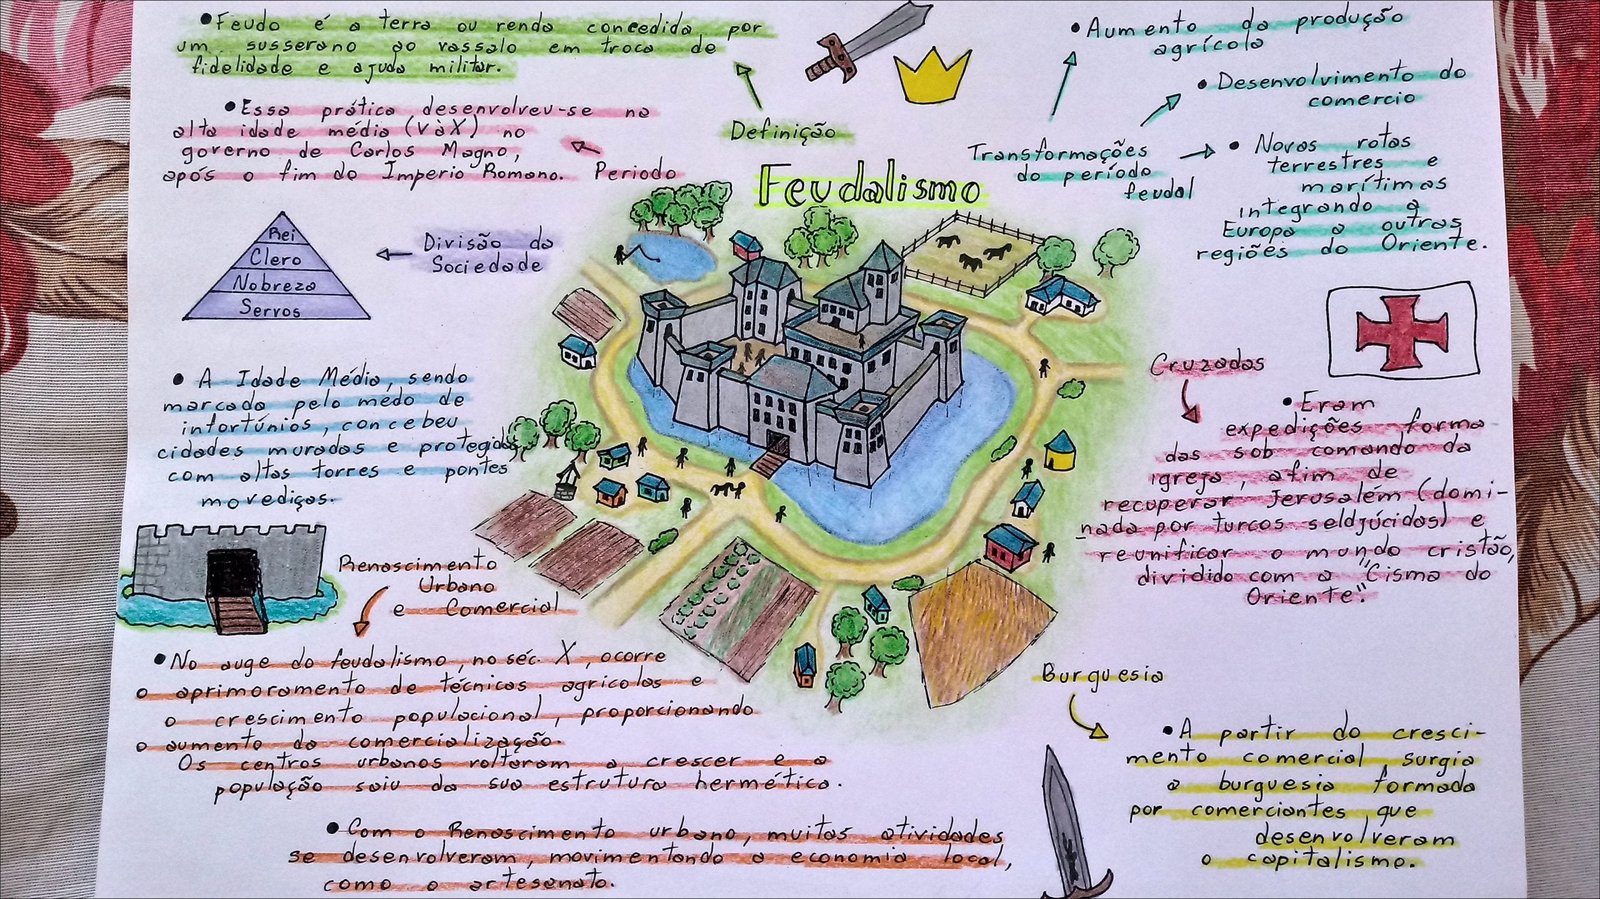 •Feudo é a terra ou renda concedida por
um susserano ao vassalo em troca de
fidelidade e ajuda militar.
Definição
•Essa prática desenvolveu-se na
alta idade média (V à X) no
governo de Carlos Magno,
após o fim do Imperio Romano.
Periodo
Feudalismo
Transformações
do período
feudal
•Aumento da produção
agrícola
•Desenvolvimento do
comercio
•Novas rotas
terrestres e
marítimas
integrando a
Europa a outras
regiões do Oriente.
Divisão da
Sociedade
Rei
Clero
Nobreza
Servos
•A Idade Média, sendo
marcada pelo medo de
infortúnios, concebeu
cidades muradas e protegidas
com altas torres e pontes
movediças.
Cruzadas
•Eram
expedições forma
das sob comando da
igreja, afim de
recuperar Jerusalém (domi-
nada por turcos seldjúcidas) e
reunificar o mundo cristão,
dividido com a "Cisma do
Oriente".
Renascimento
Urbano
e Comercial
•No auge do feudalismo, no séc. X, ocorre
o aprimoramento de técnicas agrícolas e
o crescimento populacional, proporcionando
o aumento da comercialização.
Os centros urbanos voltaram a crescer e a
população saiu da sua estrutura hermética.
•Com o Renascimento urbano, muitas atividades
se desenvolveram, movimentando a economia local,
como o artesanato.
Burguesia
•A partir do cresci-
mento comercial, surgia
a burguesia formada
por comerciantes que
desenvolveram
o capitalismo.